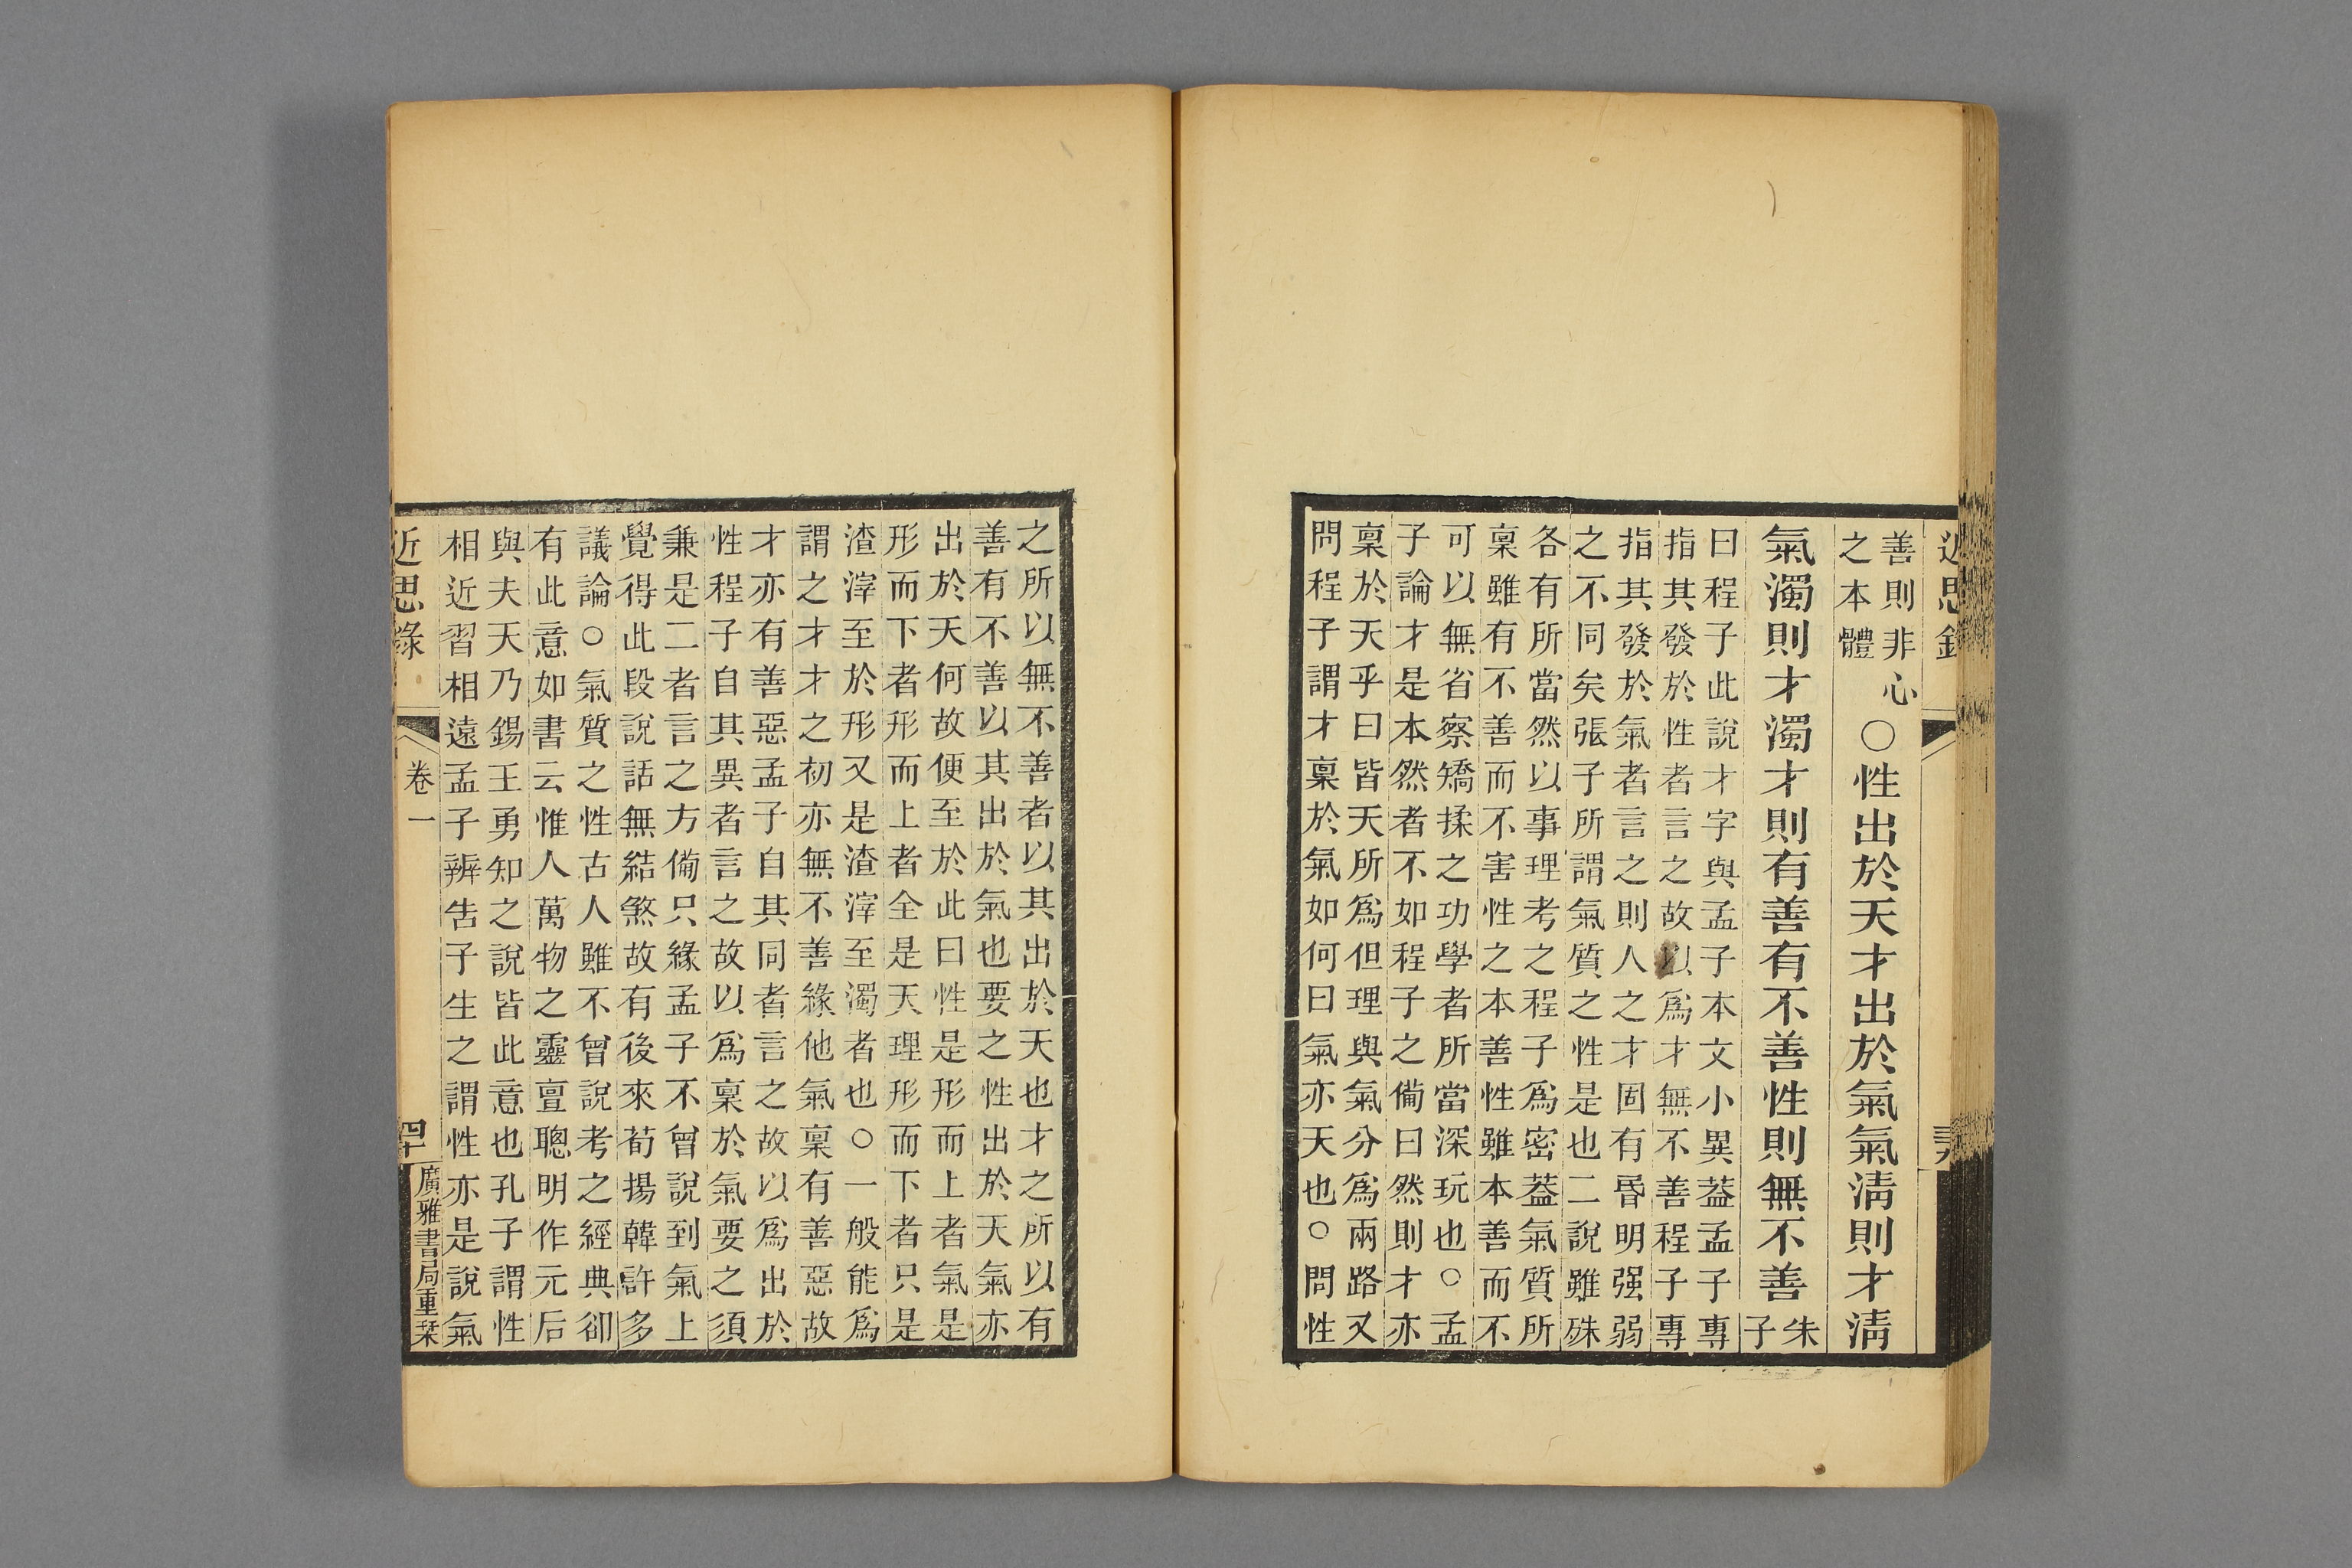 近思錄
善則非心
之本體
〇性出於天才出於氣氣淸則才淸
氣濁則才濁才則有善有不善性則無不善
朱
子
曰程子此說才字與孟子本文小異葢孟子專
指其發於性者言之故以爲才無不善程子專
指其發於氣者言之則人之才固有昬明强弱
之不同矣張子所謂氣質之性是也二說雖殊
各有所當然以事理考之程子爲密葢氣質所
稟雖有不善而不害性之本善性雖本善而不
可以無省察矯揉之功學者所當深玩也〇孟
子論才是本然者不如程子之備曰然則才亦
稟於天乎曰皆天所爲但理與氣分爲兩路又
問程子謂才稟於氣如何曰氣亦天也〇問性
之所以無不善者以其出於天也才之所以有
善有不善以其出於氣也要之性出於天氣亦
出於天何故便至於此曰性是形而上者氣是
形而下者形而上者全是天理形而下者只是
渣滓至於形又是渣滓至濁者也〇一般能爲
謂之才才之初亦無不善緣他氣稟有善惡故
才亦有善惡孟子自其同者言之故以爲出於
性程子自其異者言之故以爲稟於氣要之須
兼是二者言之方備只緣孟子不曾說到氣上
覺得此段說話無結煞故有後來荀揚韓許多
議論〇氣質之性古人雖不曾說考之經典卻
有此意如書云惟人萬物之靈亶聰明作元后
與夫天乃錫王勇知之說皆此意也孔子謂性
相近習相遠孟子辨告子生之謂性亦是說氣
近思錄
卷一
四十
廣雅書局重栞